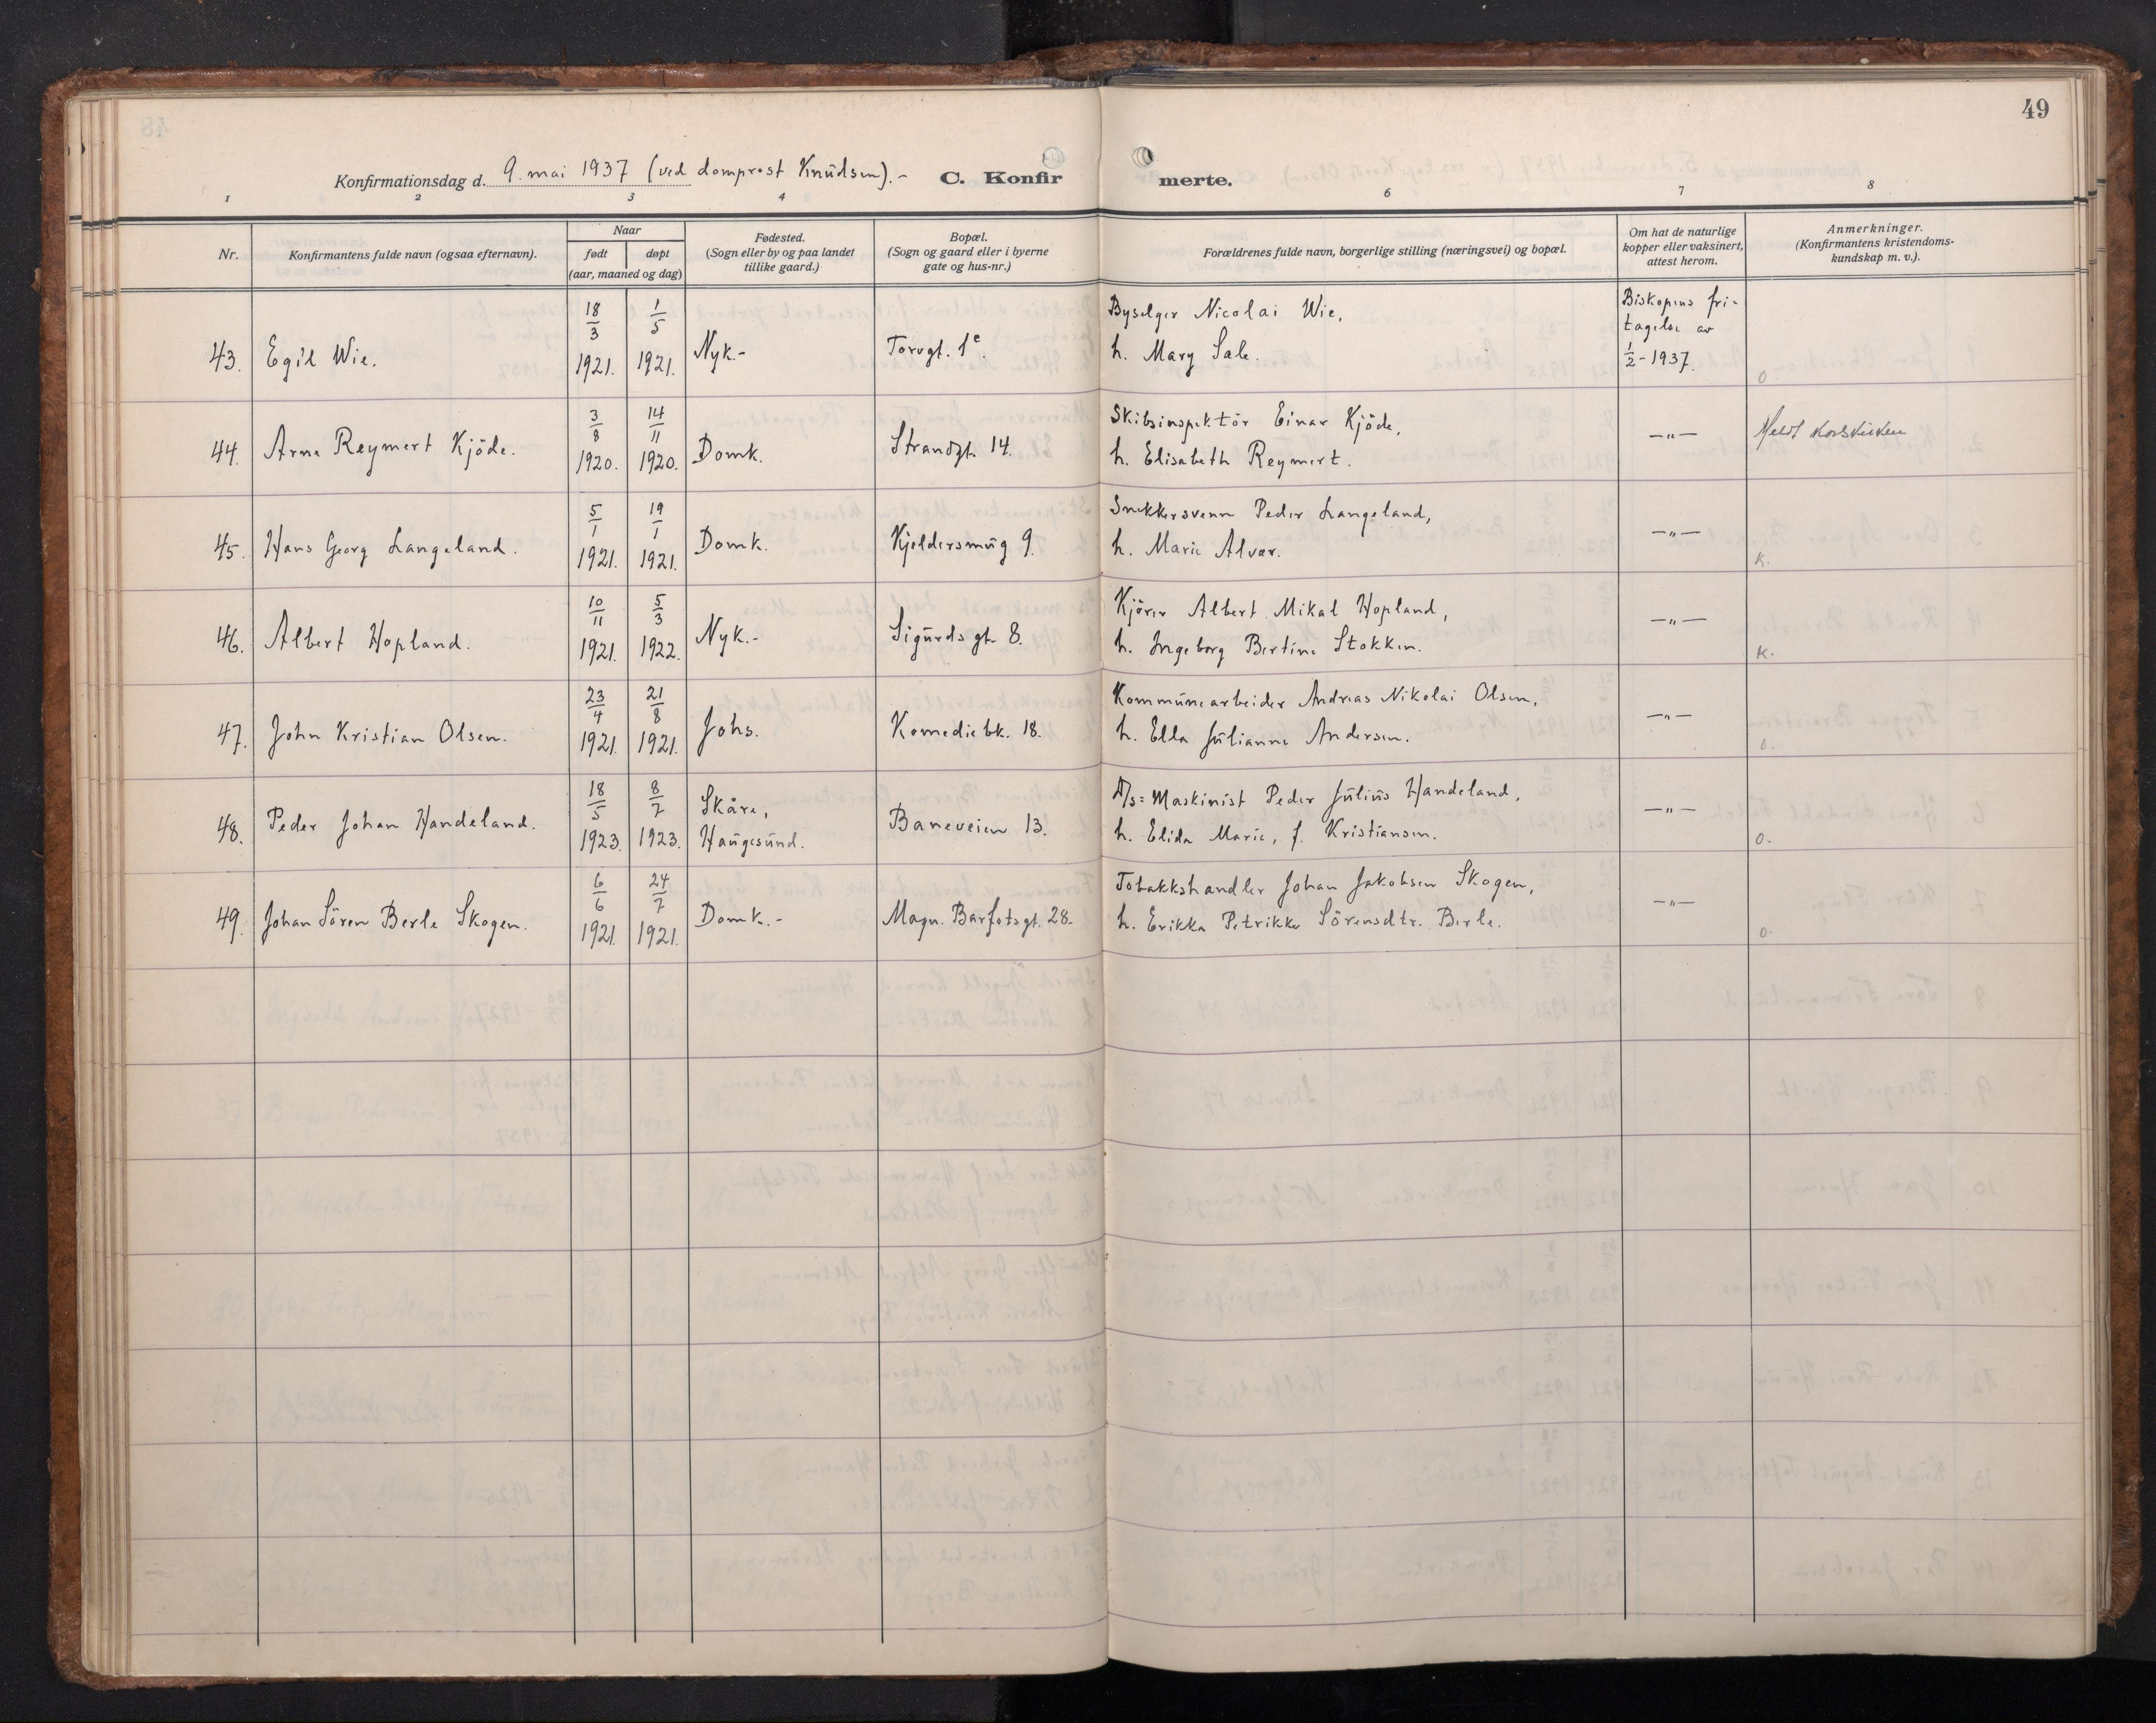 49
Konfirmationsdag d. 9. mai 1937 (ved domprost Knudsen).- C. Konfirmerte.
1 2 3 4 6 7 8
Nr.
Konfirmantens fulde navn (ogsaa efternavn).
Naar
født døpt
(aar, maaned og dag)
Fødested.
(Sogn eller by og paa landet
tillike gaard.)
Bopæl.
(Sogn og gaard eller i byerne
gate og hus-nr.)
Forældrenes fulde navn, borgerlige stilling (næringsvei) og bopæl.
Om hat de naturlige
kopper eller vaksinert,
attest herom.
Anmerkninger.
(Konfirmantens kristendoms-
kundskap m. v.).
43. Egil Wie. 18/3 1921. 1/5 1921. Nyk.- Torvgt. 1e.
Byselger Nicolai Wie,
h. Mary Sale.
Biskopens fri-
tagelse av
1/2-1937.
o
44. Arne Reymert Kjöde. 3/8 1920. 14/11 1920. Domk. Strandgt. 14.
Skibsinspektör Einar Kjöde,
h. Elisabeth Reymert.
—"—
Meldt Korskirken
45. Hans Georg Langeland. 5/1 1921. 19/1 1921. Domk. Kjeldersmug 9.
Snekkersvenn Peder Langeland,
h. Marie Alvær.
—"—
K.
46. Albert Hopland. 10/11 1921. 5/3 1922. Nyk.- Sigurds gt. 8.
Kjörer Albert Mikal Hopland,
h. Ingeborg Bertine Stokken.
—"—
K.
47. John Kristian Olsen. 23/4 1921. 21/8 1921. Johs. Komediebk. 18.
Kommunearbeider Andreas Nikolai Olsen,
h. Ella Julianne Andersen.
—"—
o.
48. Peder Johan Handeland. 18/5 1923. 8/7 1923. Skåre,
Haugesund. Baneveien 13.
D/s= Maskinist Peder Julius Handeland,
h. Elida Marie, f. Kristiansen.
—"—
o.
49. Johan Sören Berle Skogen. 6/6 1921. 24/7 1921. Domk.- Magn. Barfotsgt. 28.
Tobakkshandler Johan Jakobsen Skogen,
h. Erikka Petrikke Sörensdtr. Berle.
—"—
o.